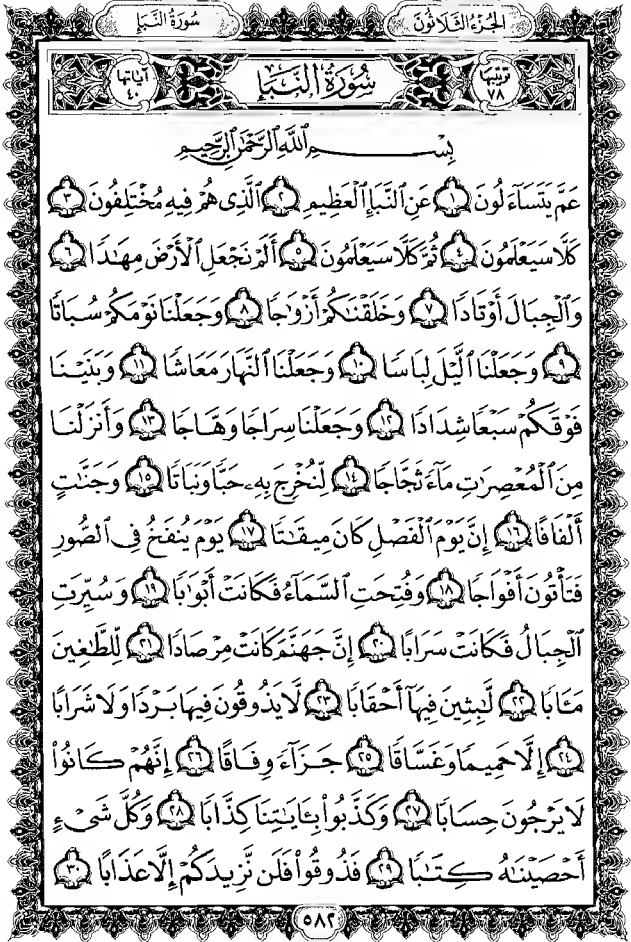 سُورَةُ النَّبَإِ
الجُزْءُ الثَّلَاثُونَ
آيَاتُهَا ٤٠
سُورَةُ النَّبَإِ
تَرْتِيبُهَا ٧٨
بِسْمِ ٱللَّهِ ٱلرَّحْمَٰنِ ٱلرَّحِيمِ
عَمَّ يَتَسَآءَلُونَ ١ عَنِ ٱلنَّبَإِ ٱلْعَظِيمِ ٢ ٱلَّذِى هُمْ فِيهِ مُخْتَلِفُونَ ٣
كَلَّا سَيَعْلَمُونَ ٤ ثُمَّ كَلَّا سَيَعْلَمُونَ ٥ أَلَمْ نَجْعَلِ ٱلْأَرْضَ مِهَٰدًا ٦
وَٱلْجِبَالَ أَوْتَادًا ٧ وَخَلَقْنَٰكُمْ أَزْوَٰجًا ٨ وَجَعَلْنَا نَوْمَكُمْ سُبَاتًا
٩ وَجَعَلْنَا ٱلَّيْلَ لِبَاسًا ١٠ وَجَعَلْنَا ٱلنَّهَارَ مَعَاشًا ١١ وَبَنَيْنَا
فَوْقَكُمْ سَبْعًا شِدَادًا ١٢ وَجَعَلْنَا سِرَاجًا وَهَّاجًا ١٣ وَأَنزَلْنَا
مِنَ ٱلْمُعْصِرَٰتِ مَآءً ثَجَّاجًا ١٤ لِّنُخْرِجَ بِهِۦ حَبًّا وَنَبَاتًا ١٥ وَجَنَّٰتٍ
أَلْفَافًا ١٦ إِنَّ يَوْمَ ٱلْفَصْلِ كَانَ مِيقَٰتًا ١٧ يَوْمَ يُنفَخُ فِى ٱلصُّورِ
فَتَأْتُونَ أَفْوَاجًا ١٨ وَفُتِحَتِ ٱلسَّمَآءُ فَكَانَتْ أَبْوَٰبًا ١٩ وَسُيِّرَتِ
ٱلْجِبَالُ فَكَانَتْ سَرَابًا ٢٠ إِنَّ جَهَنَّمَ كَانَتْ مِرْصَادًا ٢١ لِّلطَّٰغِينَ
مَـَٔابًا ٢٢ لَّٰبِثِينَ فِيهَآ أَحْقَابًا ٢٣ لَّا يَذُوقُونَ فِيهَا بَرْدًا وَلَا شَرَابًا
٢٤ إِلَّا حَمِيمًا وَغَسَّاقًا ٢٥ جَزَآءً وِفَاقًا ٢٦ إِنَّهُمْ كَانُوا۟
لَا يَرْجُونَ حِسَابًا ٢٧ وَكَذَّبُوا۟ بِـَٔايَٰتِنَا كِذَّابًا ٢٨ وَكُلَّ شَىْءٍ
أَحْصَيْنَٰهُ كِتَٰبًا ٢٩ فَذُوقُوا۟ فَلَن نَّزِيدَكُمْ إِلَّا عَذَابًا ٣٠
٥٨٢